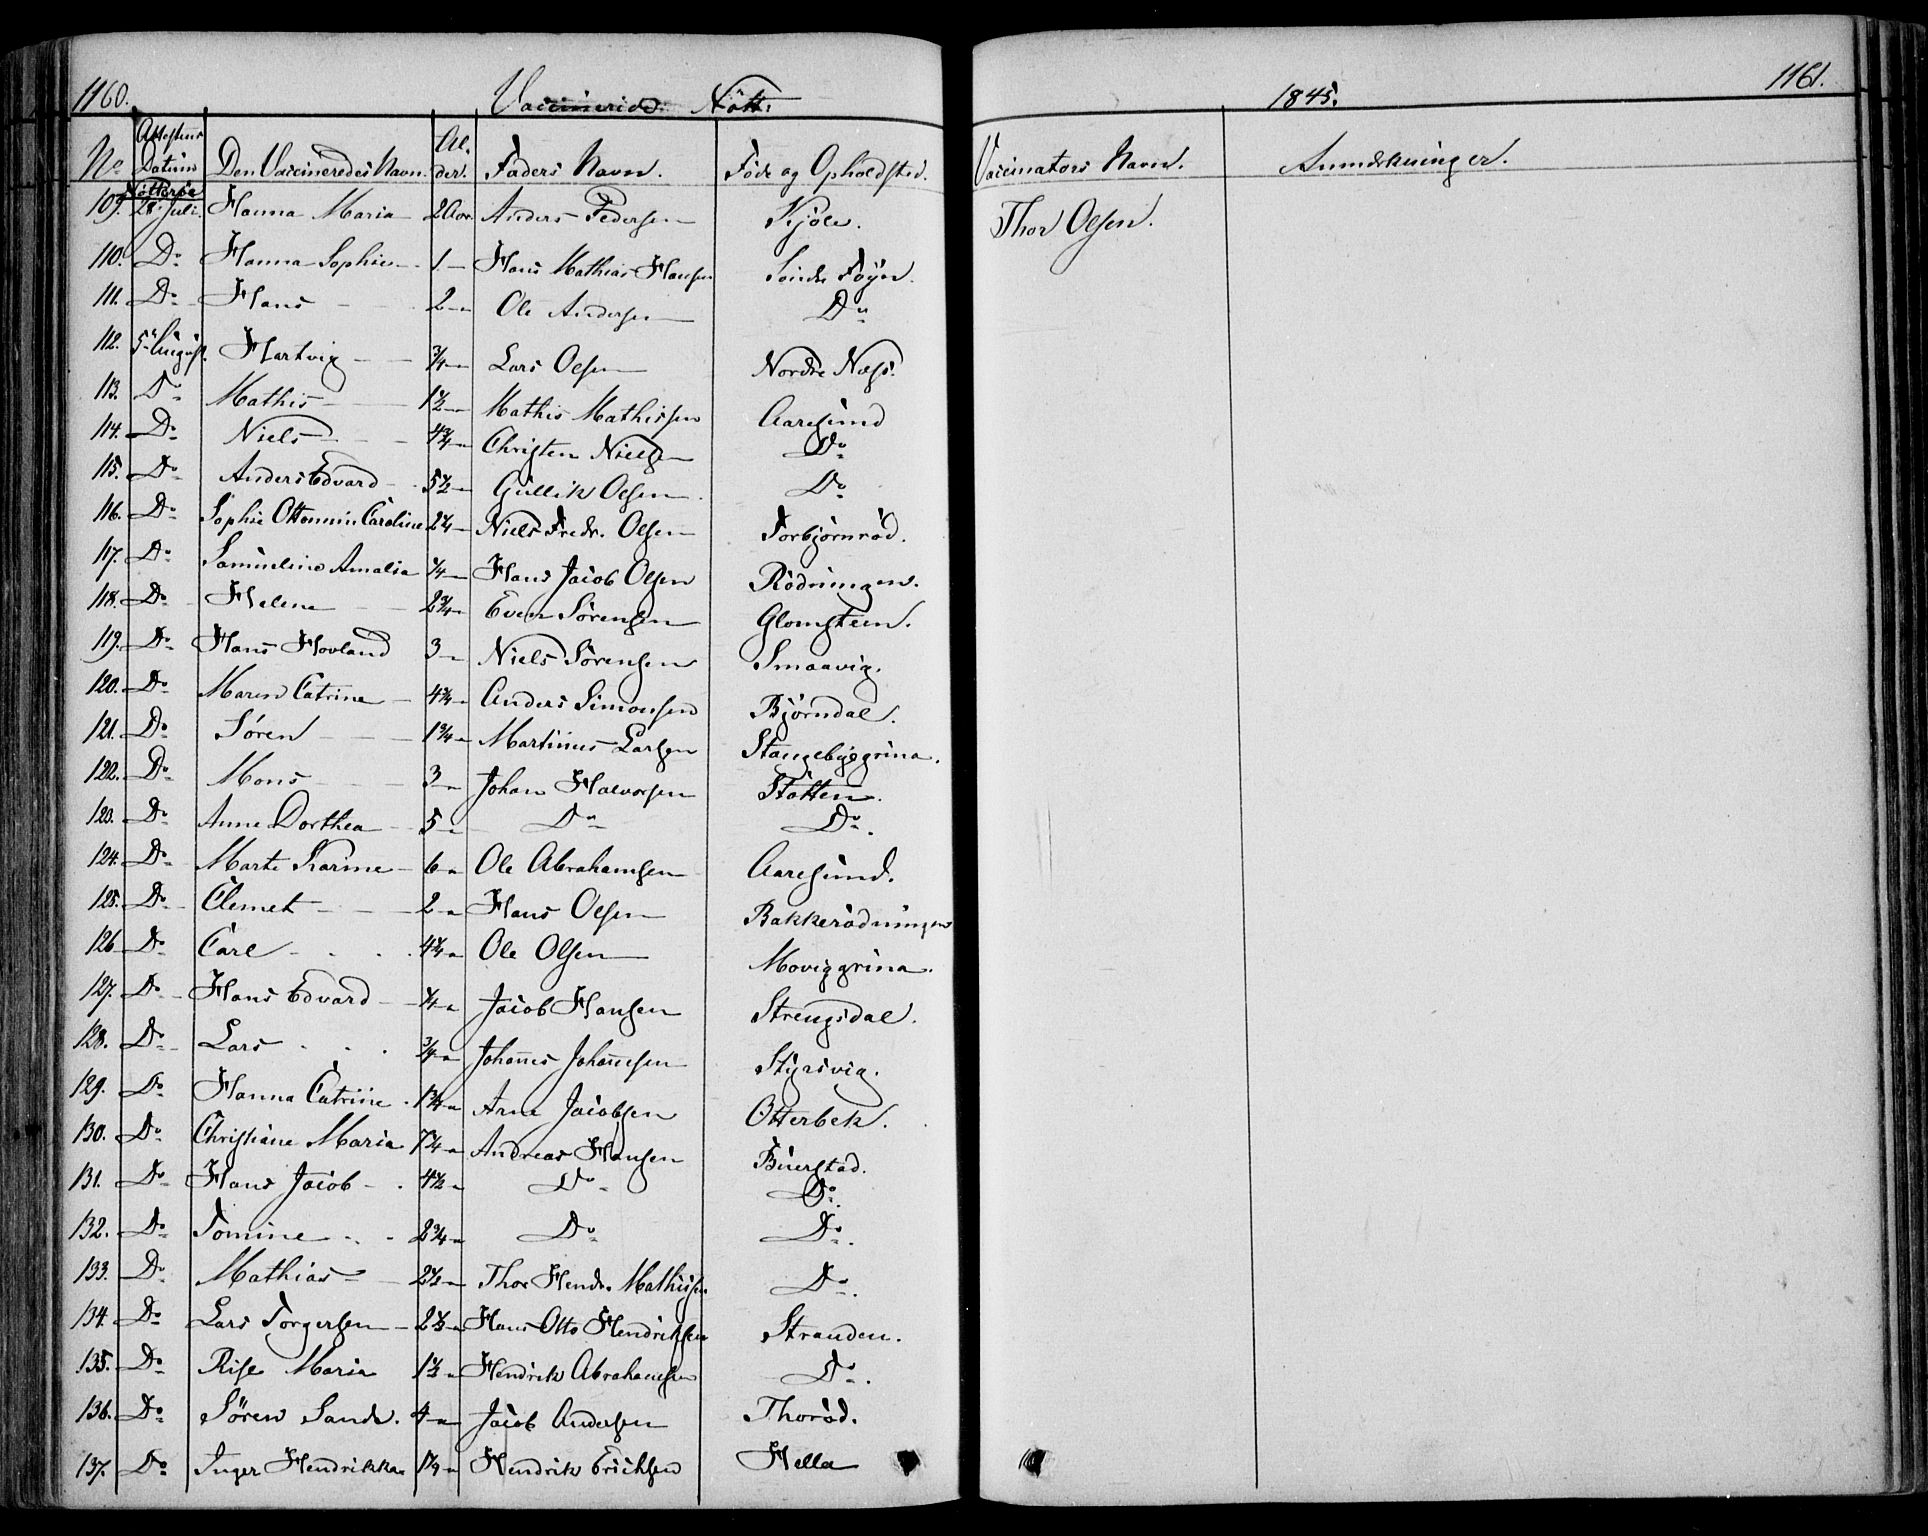 1160. Vaccinerede Nött. 1845. 1161.
No Attestens Datum Den Vaccineredes Navn. Alder. Faders Navn. Föde og Opholdsted. Vaccinators Navn. Anmærkninger.
Nötteröe
109. 28 Juli. Hanna Maria 2 Aar Anders Pedersen Kjöle. Thor Olsen.
110. Do Hanna Sophie 1 Hans Mathias Hansen Söndre Föyn.
111. Do Hans 2 Ole Andersen Do
112. 5 August. Hartvig 3/4 Lars Olsen Nordre Næss.
113. Do Mathis 1 1/2 Mathis Mathissen Aaresund
114. Do Niels 4 3/4 Christen Nielsen Do
115. Do Anders Edvard 5 1/2 Gullik Olsen Do
116. Do Sophie Ottomin Caroline 2 1/4 Niels Fredr. Olsen Torbjörnröd.
117. Do Samuline Amalia 1/4 Hans Jacob Olsen Rödningen.
118. Do Helene 2 3/4 Even Sörensen Glomstein.
119. Do Hans Hovland 3 Niels Sörensen Smaavig.
120. Do Maren Catrine 4 3/4 Anders Simonsen Björndal.
121. Do Sören 1 3/4 Martinus Larsen Stangebyggrina.
122. Do Mons 3 Johan Halvorsen Tötten.
123. Do Anne Dorthea 5 Do Do.
124. Do Marte Karine 6 Ole Abrahamsen Aaresund.
125. Do Clemet 2 Hans Olsen Bakkerödningen
126 Do Carl 4 1/4 Ole Olsen Moviggrina.
127. Do Hans Edvard 1/4 Jacob Hansen Strengsdal.
128. Do Lars 3/4 Johannes Johannesen Styrsvig.
129. Do Hanna Catrine 1 3/4 Arne Jacobsen Otterbek.
130. Do Christiane Maria 7 1/4 Andreas Hansen Buerstad.
131. Do Hans Jacob 4 1/2 Do Do.
132. Do Tomine 2 3/4 Do Do.
133. Do Mathias 2 1/2 Thor Hendr. Mathissen Do.
134. Do Lars Torgersen 2 1/3 Hans Otto Hendriksen Stranden.
135. Do Rise Maria 1 1/2 Hendrik Abrahamsen Do.
136. Do Sören Sande. 4 Jacob Andersen Thoröd.
137. Do Inger Hendrikka 1 1/9 Hendrik Erichsen Hella